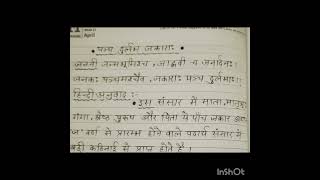 • पञ्च दुर्लभ जकाराः •
जननी जन्मभूमिश्च, जाह्नवी च जनार्दनः।
जनकः पञ्चमश्चैव, जकाराः पञ्च दुर्लभाः॥
हिन्दी अनुवाद :-
इस संसार में माता, मातृभू
गंगा, श्रेष्ठ पुरूष और पिता ये पाँच जकार अर्था
ज वर्ण से प्रारम्भ होने वाले पदार्थ संसार में
बड़ी कठिनाई से प्राप्त होते है।
InShOt